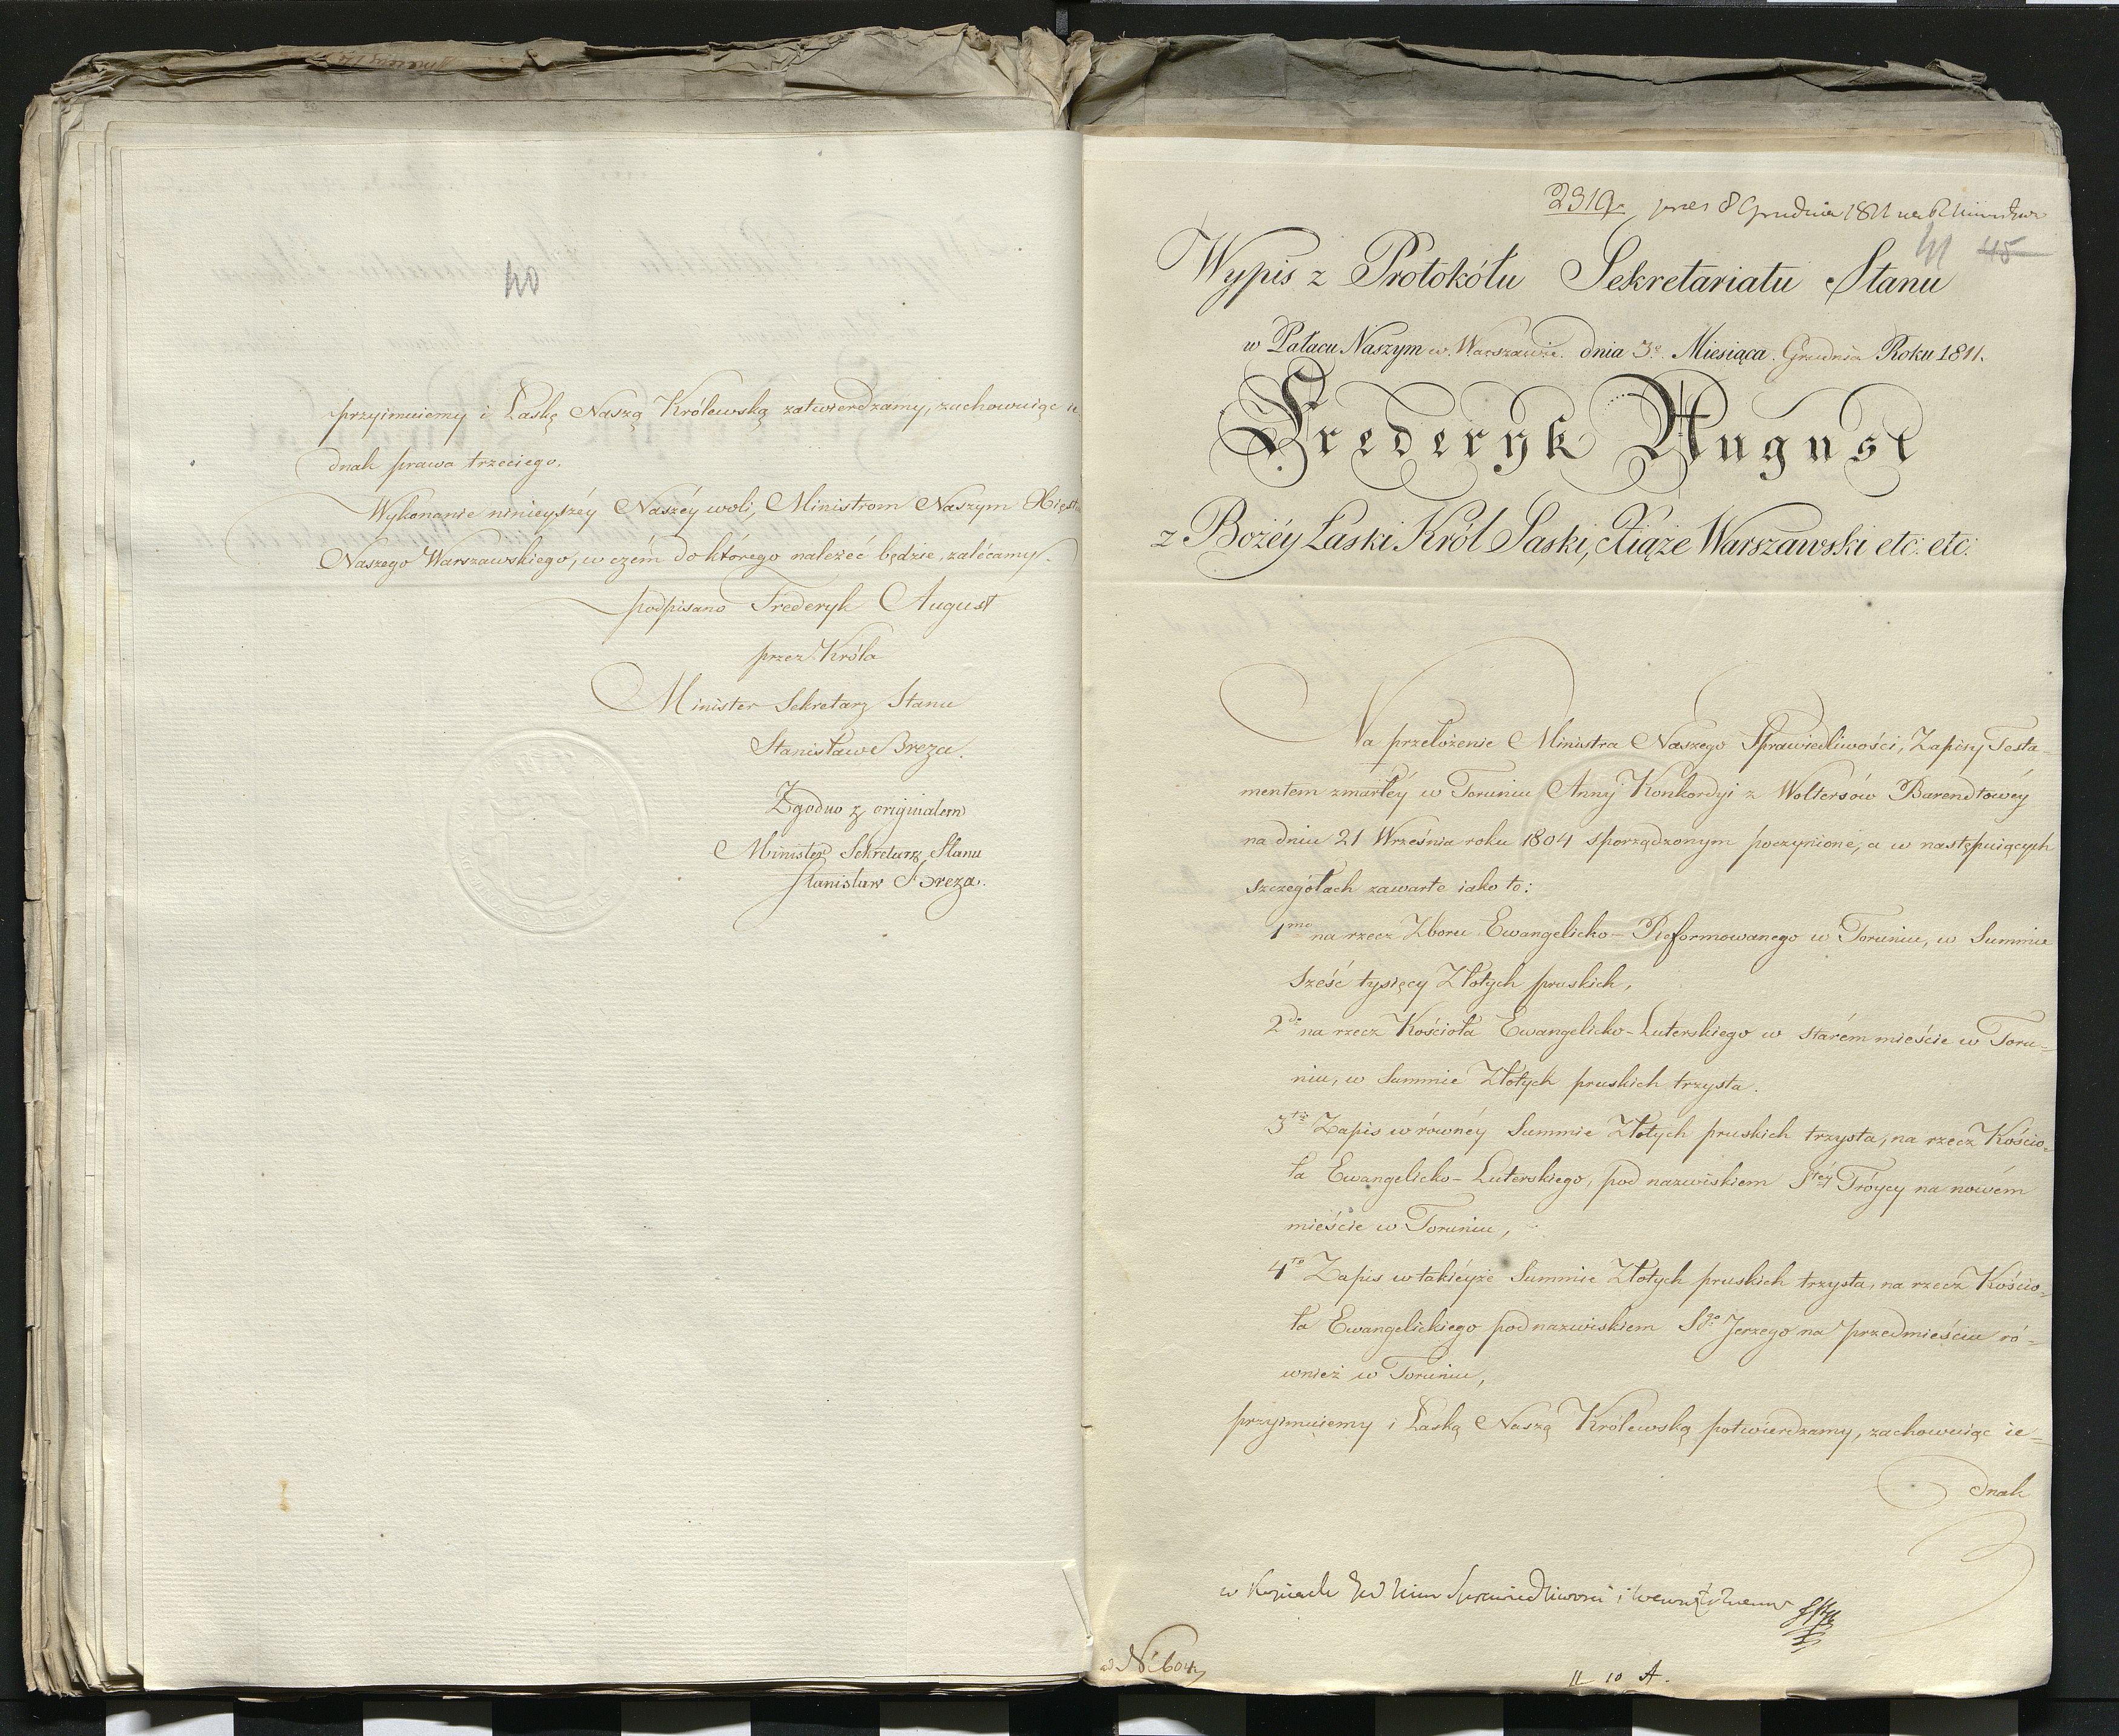 40
przyimuiemy i Łaskę Naszą Królewską zatwierdzamy, zachowuiąc ie
dnak prawa trzeciego.
Wykonanie ninieyszéy Naszéy woli, Ministrom Naszym Xięst
Naszego Warszawskiego, w czém do którego należeć będzie, zalécamy.
podpisano Frederyk August
przez Króla
Minister Sekretarz Stanu
Stanisław Breza.
Zgodno z originalem
Minister Sekretarz Stanu
Stanisław Breza.
2319. 8 Grudnia 1811
41 45
Wypis z Protokółu Sekretariatu Stanu
w Pałacu Naszym w Warszawie dnia 3o Miesiąca Grudnia Roku 1811.
Frederyk August
z Bożéy Łaski Król Saski, Xiąże Warszawski etc: etc:
Na przełożenie Ministra Naszego Sprawiedliwości, Zapisy Testa-
mentem zmarłéy w Toruniu Anny Konkordyi z Woltersów Barendtowéy
na dniu 21 Września roku 1804 sporządzonym poczynione, a w następuiących
szczegółach zawarte iako to:
1mo na rzecz Zboru Ewangelicko-Reformowanego w Toruniu, w Summie
sześć tysięcy Złotych pruskich,
2do na rzecz Kościoła Ewangelicko-Luterskiego w starém mieście w Toru=
niu, w Summie Złotych pruskich trzysta.
3tio Zapis w równéy Summie Złotych pruskich trzysta, na rzecz Kościo=
ła Ewangelicko-Luterskiego, pod nazwiskiem Stéy Tróycy na nowém
mieście w Toruniu,
4to Zapis w takiéyże Summie Złotych pruskich trzysta, na rzecz Kościo=
ła Ewangelickiego pod nazwiskiem Sgo Jerzego na przedmieściu ró=
wnież w Toruniu,
przyimuiemy i Łaską Naszą Królewską potwierdzamy, zachowuiąc ie=
dnak
w Sprawiedliwości i
ad No 604
11 10 A.